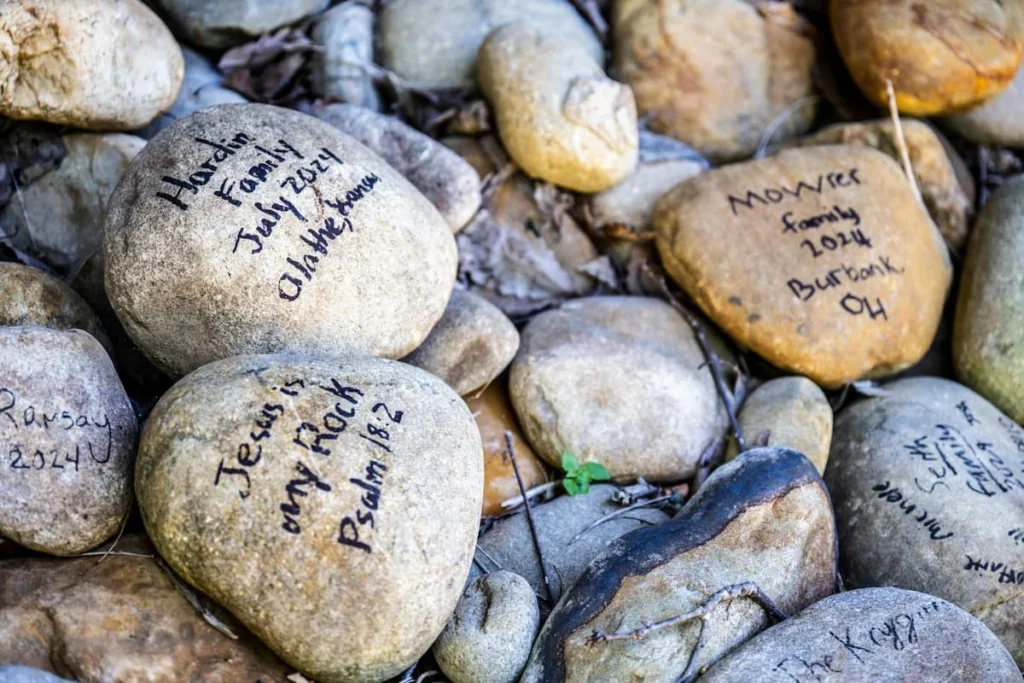 Hardin
Family
July 2024
Olathe, Kansas
Mowrer
family
2024
Burbank,
OH
Ramsay
2024
Jesus is
my Rock
Psalm 18:2
Seth
Family
2024
The